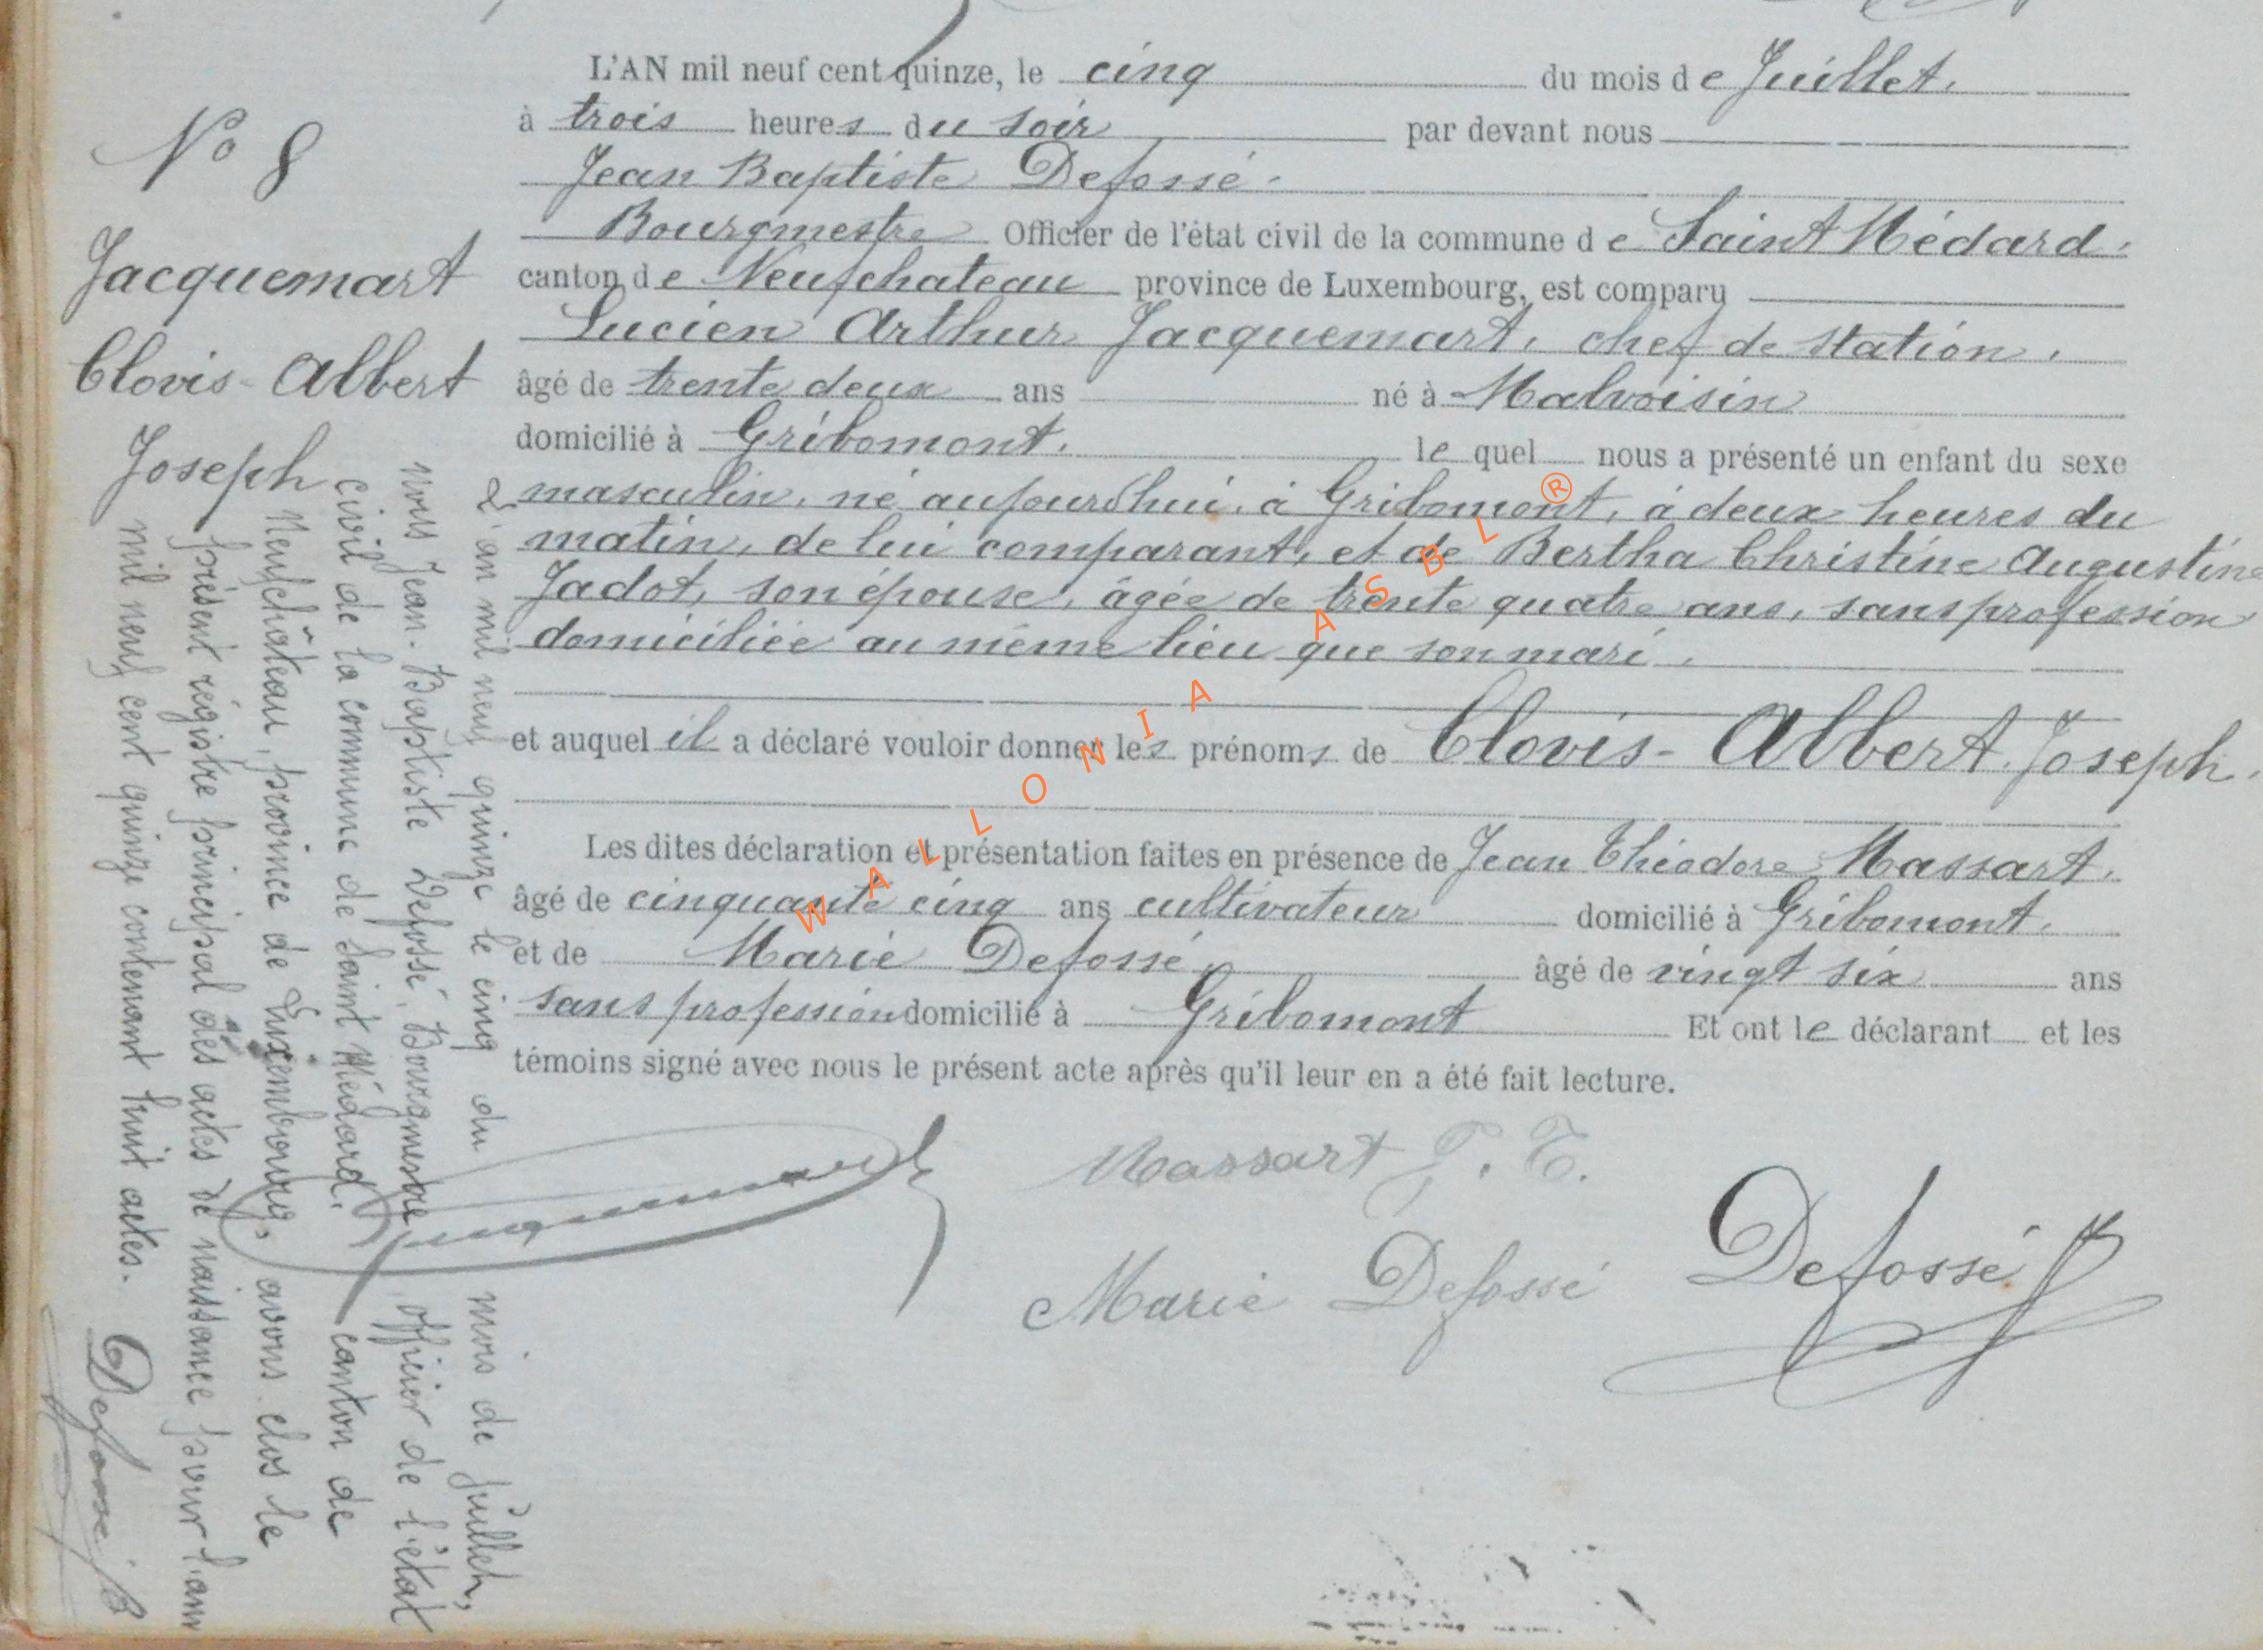 L'AN mil neuf cent quinze, le cinq du mois de Juillet.
à trois heures du soir par devant nous
Jean Baptiste Defossé.
Bourgmestre Officier de l'état civil de la commune de Saint Médard.
canton de Neufchateau province de Luxembourg, est comparu
Lucien Arthur Jacquemart, chef de station.
âgé de trente deux ans né à Malvoisin
domicilié à Gribomont. le quel nous a présenté un enfant du sexe
masculin, né aujourd'hui, à Gribomont, à deux heures du
matin, de lui comparant, et de Bertha Christine Augustine
Jadot, son épouse, âgée de trente quatre ans, sans profession
domiciliée au même lieu que son mari.
et auquel il a déclaré vouloir donner les prénoms de Clovis-Albert Joseph.
Les dites déclaration et présentation faites en présence de Jean Théodore Massart.
âgé de cinquante cinq ans cultivateur domicilié à Gribomont.
et de Marie Defossé, âgé de vingt six ans
sans profession domicilié à Gribomont Et ont le déclarant et les
témoins signé avec nous le présent acte après qu'il leur en a été fait lecture.
Jacquemart
Massart J. T.
Marie Defossé
Defossé JB
No 8
Jacquemart
Clovis-Albert
Joseph
L'an mil neuf quinze le cinq du mois de juillet,
nous Jean-Baptiste Defossé, Bourgmestre, officier de l'état
civil de la commune de Saint Médard, canton de
Neufchâteau, province de Luxembourg, avons clos le
présent régistre principal des actes de naissance pour l'ann
mil neuf cent quinze contenant huit actes.
Defossé JB
WALLONIA ASBL ®